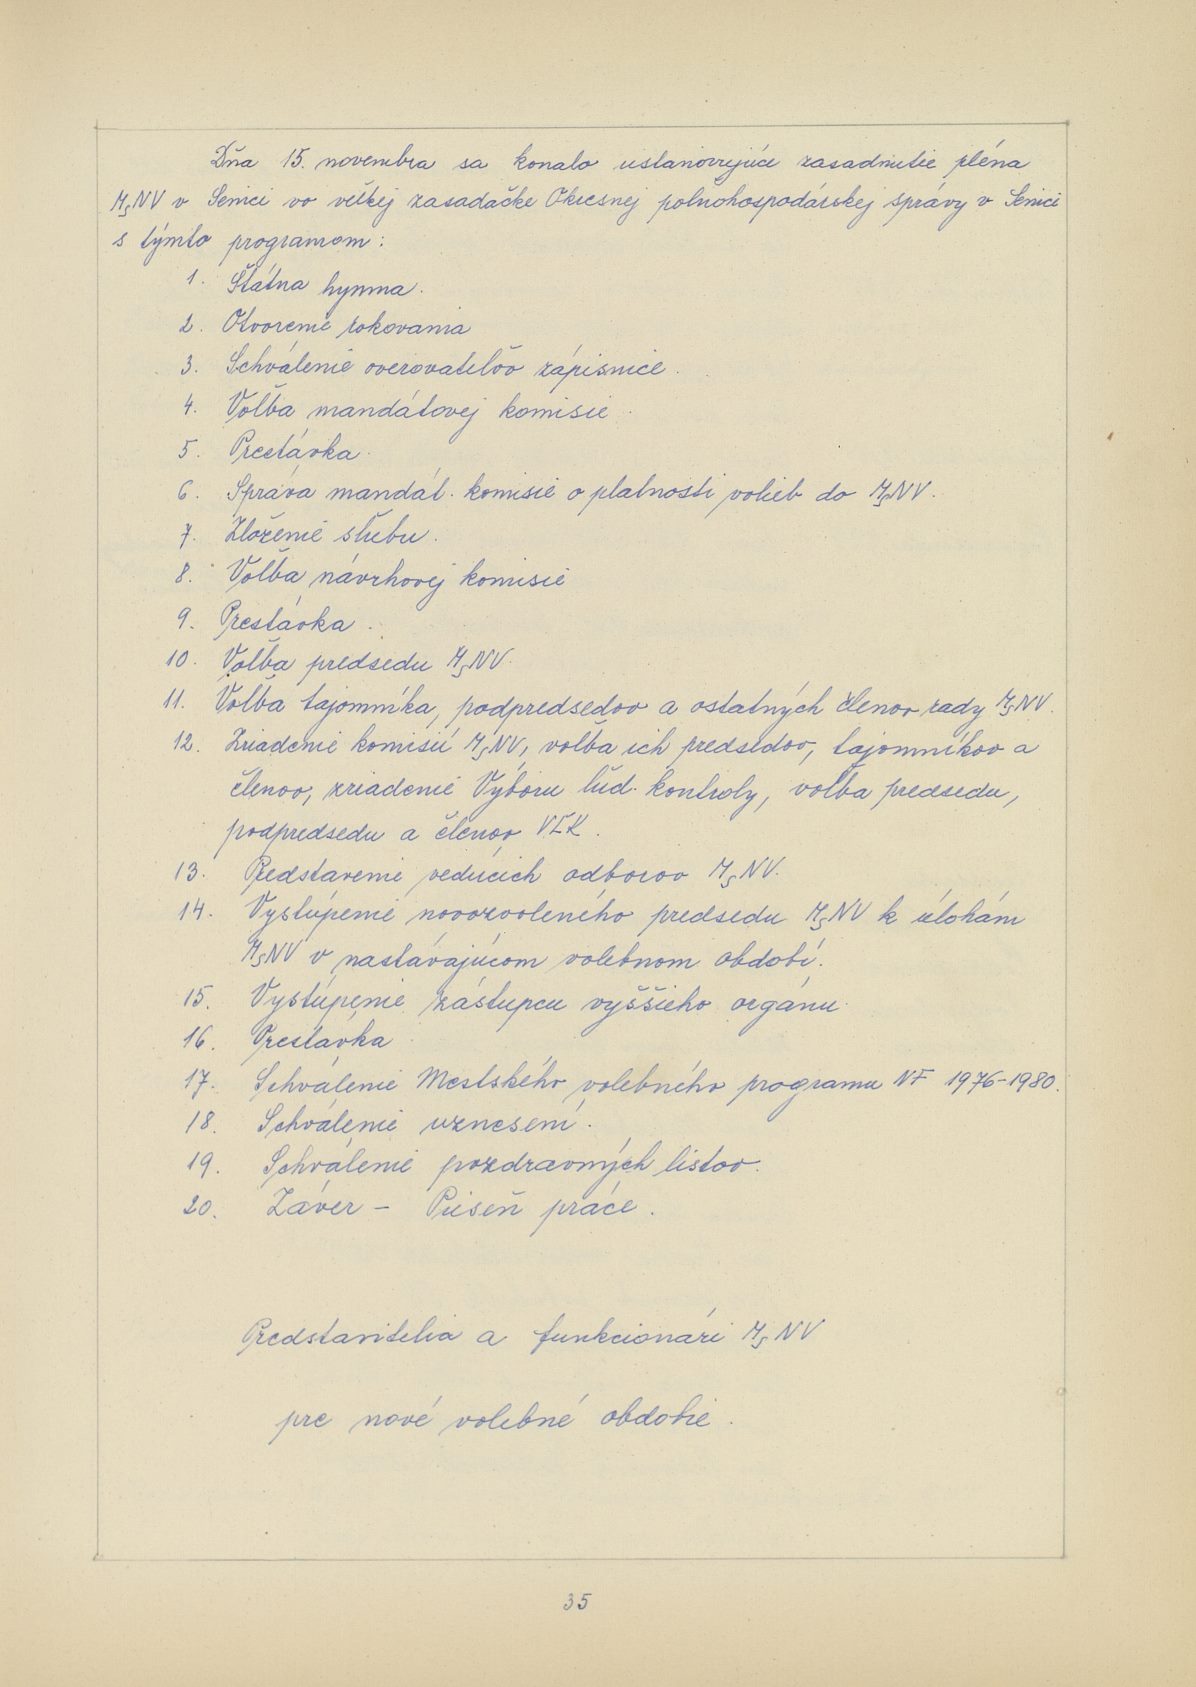 Dňa 15. novembra sa konalo ustanovujúce zasadnutie pléna
MsNV v Senici vo veľkej zasadačke Okresnej poľnohospodárskej správy v Senici
s týmto programom:
1. Štátna hymna.
2. Otvorenie rokovania
3. Schválenie overovateľov zápisnice.
4. Voľba mandátovej komisie.
5. Prestávka.
6. Správa mandát. komisie o platnosti volieb do MsNV.
7. Zloženie sľubu.
8. Voľba návrhovej komisie
9. Prestávka.
10. Voľba predsedu MsNV.
11. Voľba tajomníka, podpredsedov a ostatných členov rady MsNV.
12. Zriadenie komisií MsNV, voľba ich predsedov, tajomníkov a
členov, zriadenie Výboru ľud. kontroly, voľba predsedu,
podpredsedu a členov VĽK.
13. Predstavenie vedúcich odborov MsNV.
14. Vystúpenie novozvoleného predsedu MsNV k úlohám
MsNV v nastávajúcom volebnom období.
15. Vystúpenie zástupcu vyššieho orgánu.
16. Prestávka
17. Schválenie Mestského volebného programu NF 1976-1980.
18. Schválenie uznesení.
19. Schválenie pozdravných listov.
20. Záver - Pieseň práce.
Predstavitelia a funkcionári MsNV
pre nové volebné obdobie.
35